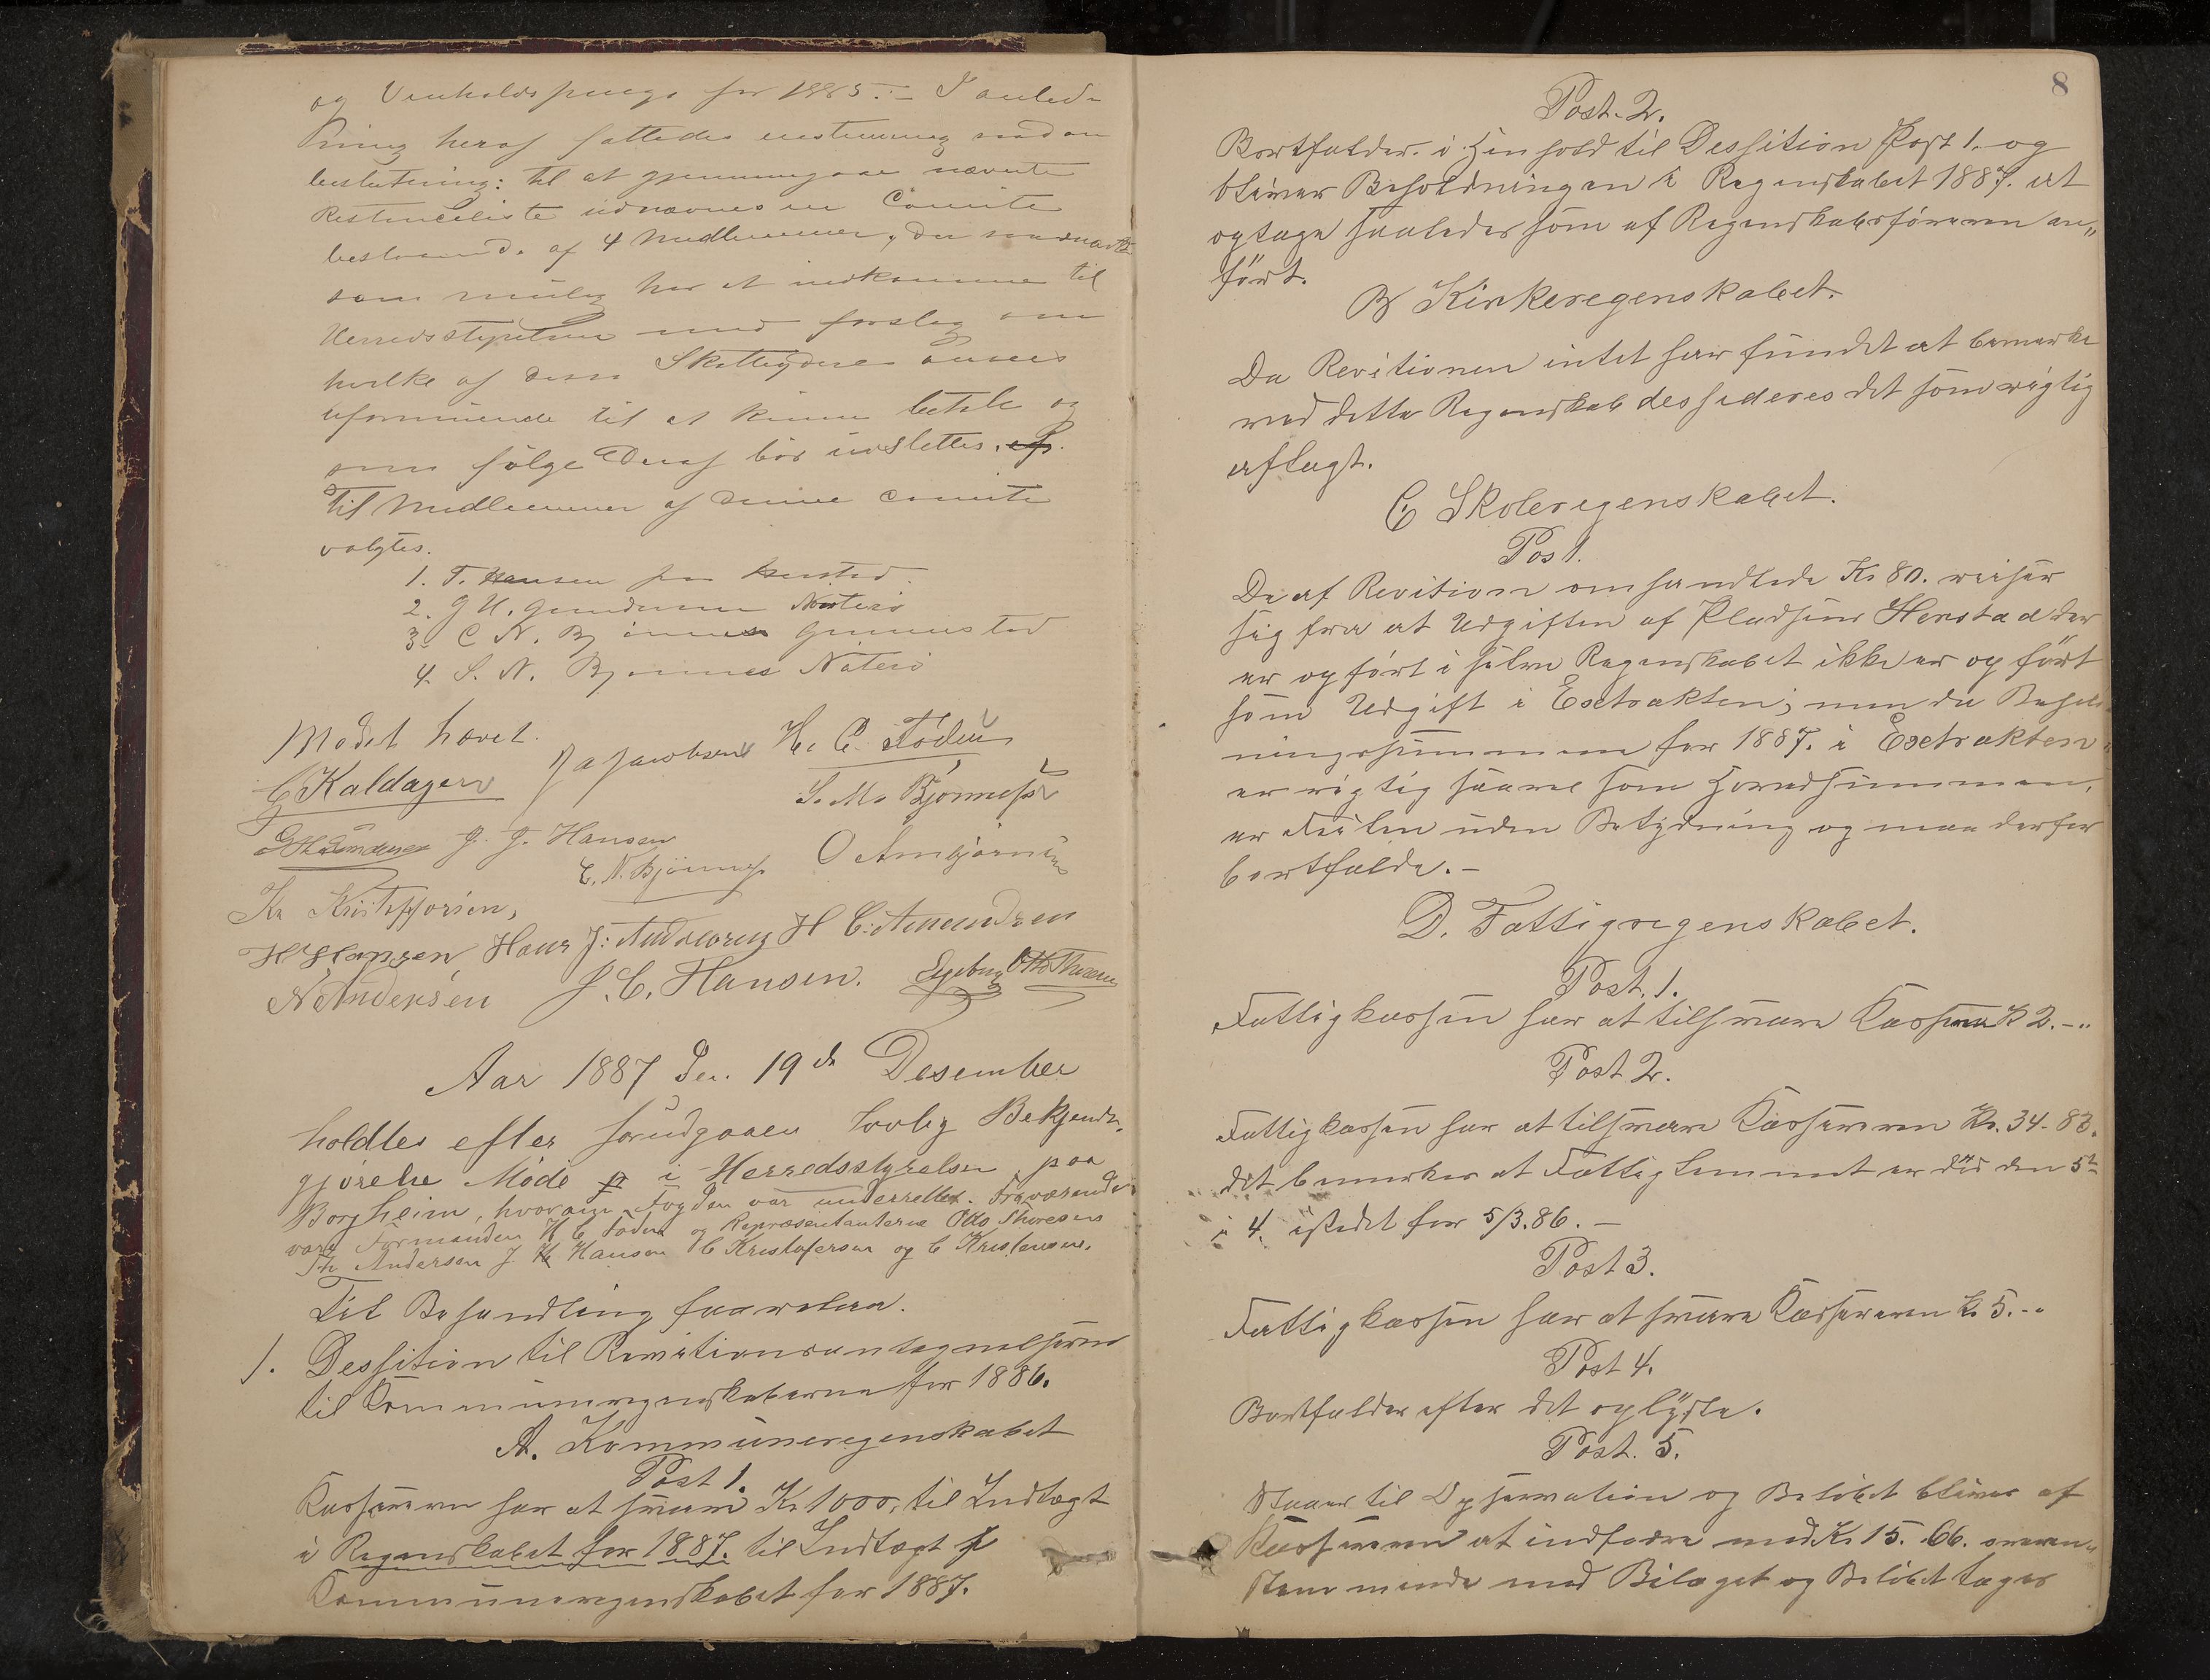 og Veiholdspenge for 1885.- I anled-
ning heraf fattedes enstemmig saadan
beslutning: til at gjennemgaae nævnte
Restanceliste udnævnes en Comite
bestaaende af 4 Medlemmer, der snarest
som mulig har at indkomme til
Herredsstyrelsen med forslag om
hvilke af disse Skatteydere ansees
uformuende til at kunne betale og
som følge Deraf bør udslettes.
Til Medlemmer af denne Comite
valgtes.
1. T. Hansen
2. G H. Gundersen Nøtterø
3. C N. Bjønnes Gunnestad
4. S. N. Bjønnes Nøtterø
Mødet hævet.
C Kaldager J A Jacobsen H. C. Föden
S. M. Bjønness
G H Gundersen J. J. Hansen
C. N. Bjønness O Arnbjørnsen
Kr Kristoffersen,
H Hansen Hans J: Andersen H C: Amundsen
N Andersen J. C. Hansen. Otto Thoresen
Aar 1887 den 19de Desember
holdtes efter forudgaaen lovlig Bekjendt-
gjørelse Møde i Herredsstyrelsen paa
Borgheim, hvorom Fogden var underrettet. Fraværende
vare Formanden H C Foden og Repræsentanterne Otto Thoresen
Th Andersen J. H Hansen C Kristofersen og C Kristensen.
Til Behandling forevares.
1. Dessition til Revitionsantegnelserne
til Kommuneregnskaberne for 1886.
A. Kommuneregenskabet
Post 1.
Kassereren har at svare Kr 1000, til Indtægt
i Regenskabet for 1887. til Indtægt
Kommuneregenskabet for 1887.
8
Post. 2.
Bortfalder i Henhold til Dessition Post 1. og
bliver Beholdningen i Regenskabet 1887. at
optage saaledes som af Regenskabsföreren an„
fört.
B Kirkeregenskabet.
Da Revitionen intet har fundet at bemærke
ved dette Regenskab dessideres det som rigtig
aflagt.
C Skoleregenskabet.
Pos 1.
De af Revition omhandlede Kr 80. viser
sig fra at Udgiften af Pladsen Herstad der
er opfört i selve Regenskabet ikke er opfört
som Udgift i Exstrakten; men da Behold-
ningssummen for 1887. i Exstrakten
er rigtig saavel som Hovedsummen,
er Feilen uden Betydning og maa derfor
bortfalde.-
D. Fattigregenskabet.
Post. 1.
Fattigkassen har at tilsvare Kasseren K 2.-„
Post 2.
Fattigkassen har at tilsvare Kassereren Kr. 34-83.
det bemerkes at Fattiglemmet er död den 5te
i 4. istedet for 5/3.86.-
Post 3.
Fattigkassen har at svare Kassereren K. 5.-„
Post 4.
Bortfalder efter det oplyste.
Post. 5.
Staaer til Opservation og Belöbet bliver af
Kassereren at indfodre med Kr 15. 66. overen„
stemmende med Bilaget og Belöbet tages